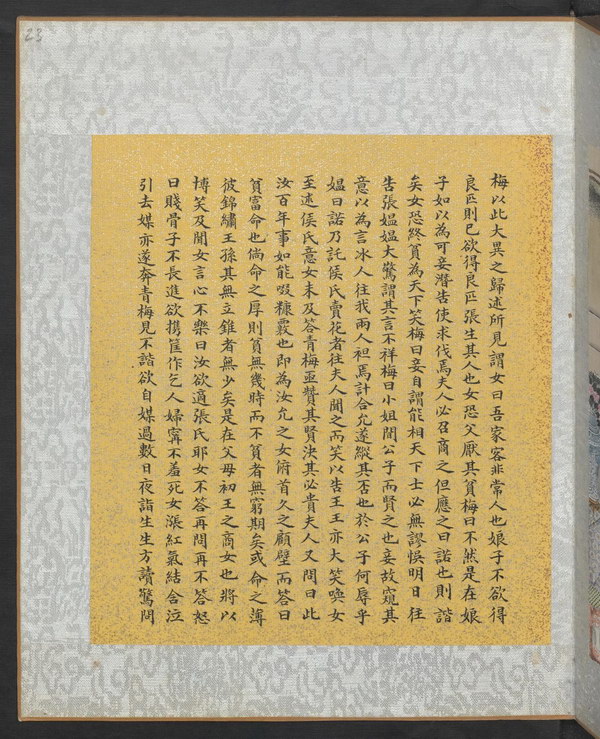 23
梅以此大異之歸述所見謂女曰吾家客非常人也娘子不欲得
良匹則已欲得良匹張生其人也女恐父厭其貧梅曰不然是在娘
子如以為可妾潛告使求伐焉夫人必召商之但應之曰諾也則諧
矣女恐終貧為天下笑梅曰妾自謂能相天下士必無謬悞明日往
告張媼媼大驚謂其言不祥梅曰小姐聞公子而賢之也妾故窺其
意以為言冰人往我兩人袒焉計合允遂縱其否也於公子何辱乎
媼曰諾乃託侯氏賣花者往夫人聞之而笑以告王王亦大笑喚女
至述侯氏意女未及答青梅亟贊其賢決其必貴夫人又問曰此
汝百年事如能啜糠覈也即為汝允之女俯首久之顧壁而答曰
貧富命也倘命之厚則貧無幾時而不貧者無窮期矣或命之薄
彼錦繡王孫其無立錐者無少矣是在父母初王之商女也將以
博笑及聞女言心不樂曰汝欲適張氏耶女不答再問再不答怒
曰賤骨子不長進欲携筐作乞人婦寧不羞死女漲紅氣結含泣
引去媒亦遂奔青梅見不諧欲自媒過數日夜詣生生方讀驚問